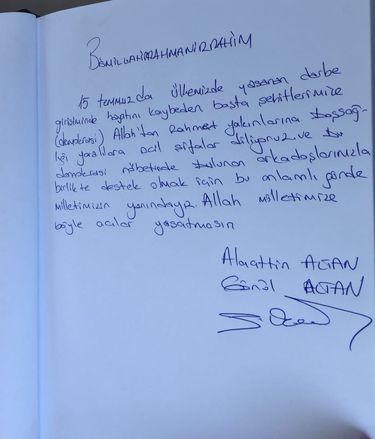 BİSMİLLAHİRRAHMANİRRAHİM
15 temmuz'da ülkemizde yaşanan darbe
girişiminde hayatını kaybeden başta şehitlerimize
(demokrasi) Allah'tan Rahmet yakınlarına başsağ-
lığı yaralılara acil şifalar diliyoruz ve bu
demokrasi nöbetinde bulunan arkadaşlarımızla
birlikte destek olmak için bu anlamlı günde
milletimizin yanındayız. Allah milletimize
böyle acılar yaşatmasın
Alaattin ALTAN
Gönül ALTAN